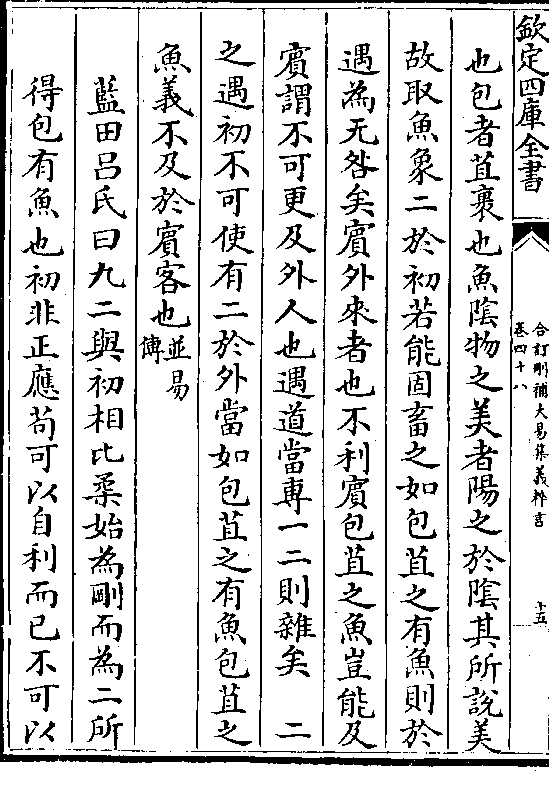 欽定四庫全書
合訂刪補大易集義粹言
卷四十八
十五
也包者苴裹也魚陰物之美者陽之於陰其所說美
故取魚象二於初若能固畜之如包苴之有魚則於
遇為无咎矣賓外來者也不利賓包苴之魚豈能及
賓謂不可更及外人也遇道當專一二則雜矣　二
之遇初不可使有二於外當如包苴之有魚包苴之
魚義不及於賓客也並易傳
藍田呂氏曰九二與初相比柔始為剛而為二所
得包有魚也初非正應苟可以自利而已不可以